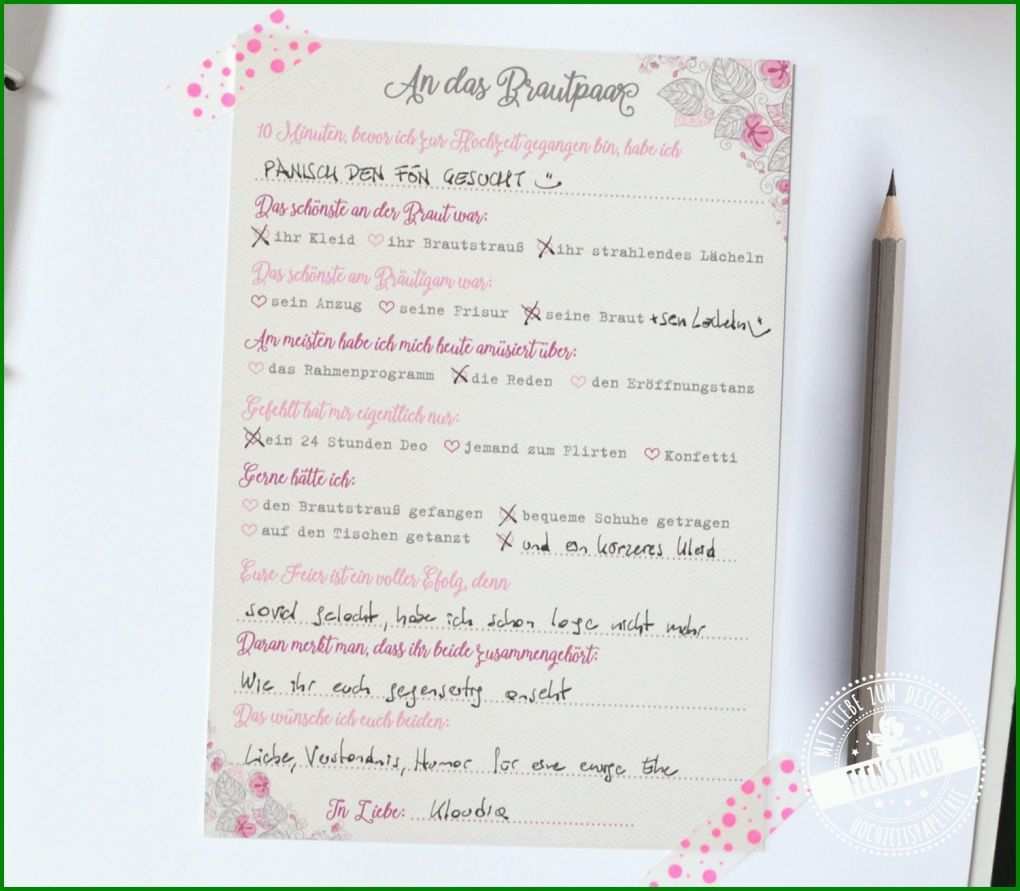 An das Brautpaar
10 Minuten, bevor ich zur Hochzeit gegangen bin, habe ich
PANISCH DEN FÖN GESUCHT
Das schönste an der Braut war:
ihr Kleid ihr Brautstrauß ihr strahlendes Lächeln
Das schönste am Bräutigam war:
sein Anzug seine Frisur seine Braut + sein Lächeln
Am meisten habe ich mich heute amüsiert über:
das Rahmenprogramm die Reden den Eröffnungstanz
Gefehlt hat mir eigentlich nur:
ein 24 Stunden Deo jemand zum Flirten Konfetti
Gerne hätte ich:
den Brautstrauß gefangen bequeme Schuhe getragen
auf den Tischen getanzt und ein kürzeres Kleid
Eure Feier ist ein voller Efolg, denn
soviel gelacht, habe ich schon lage nicht mehr
Daran merkt man, dass ihr beide zusammengehört:
Wie ihr euch gegenseitig anseht
Das wünsche ich euch beiden:
Liebe, Verständnis, Humor für eine ewige Ehe
In Liebe: Klaudia
MIT LIEBE ZUM DESIGN
FEENSTAUB
HOCHZEITSPAPETERIE